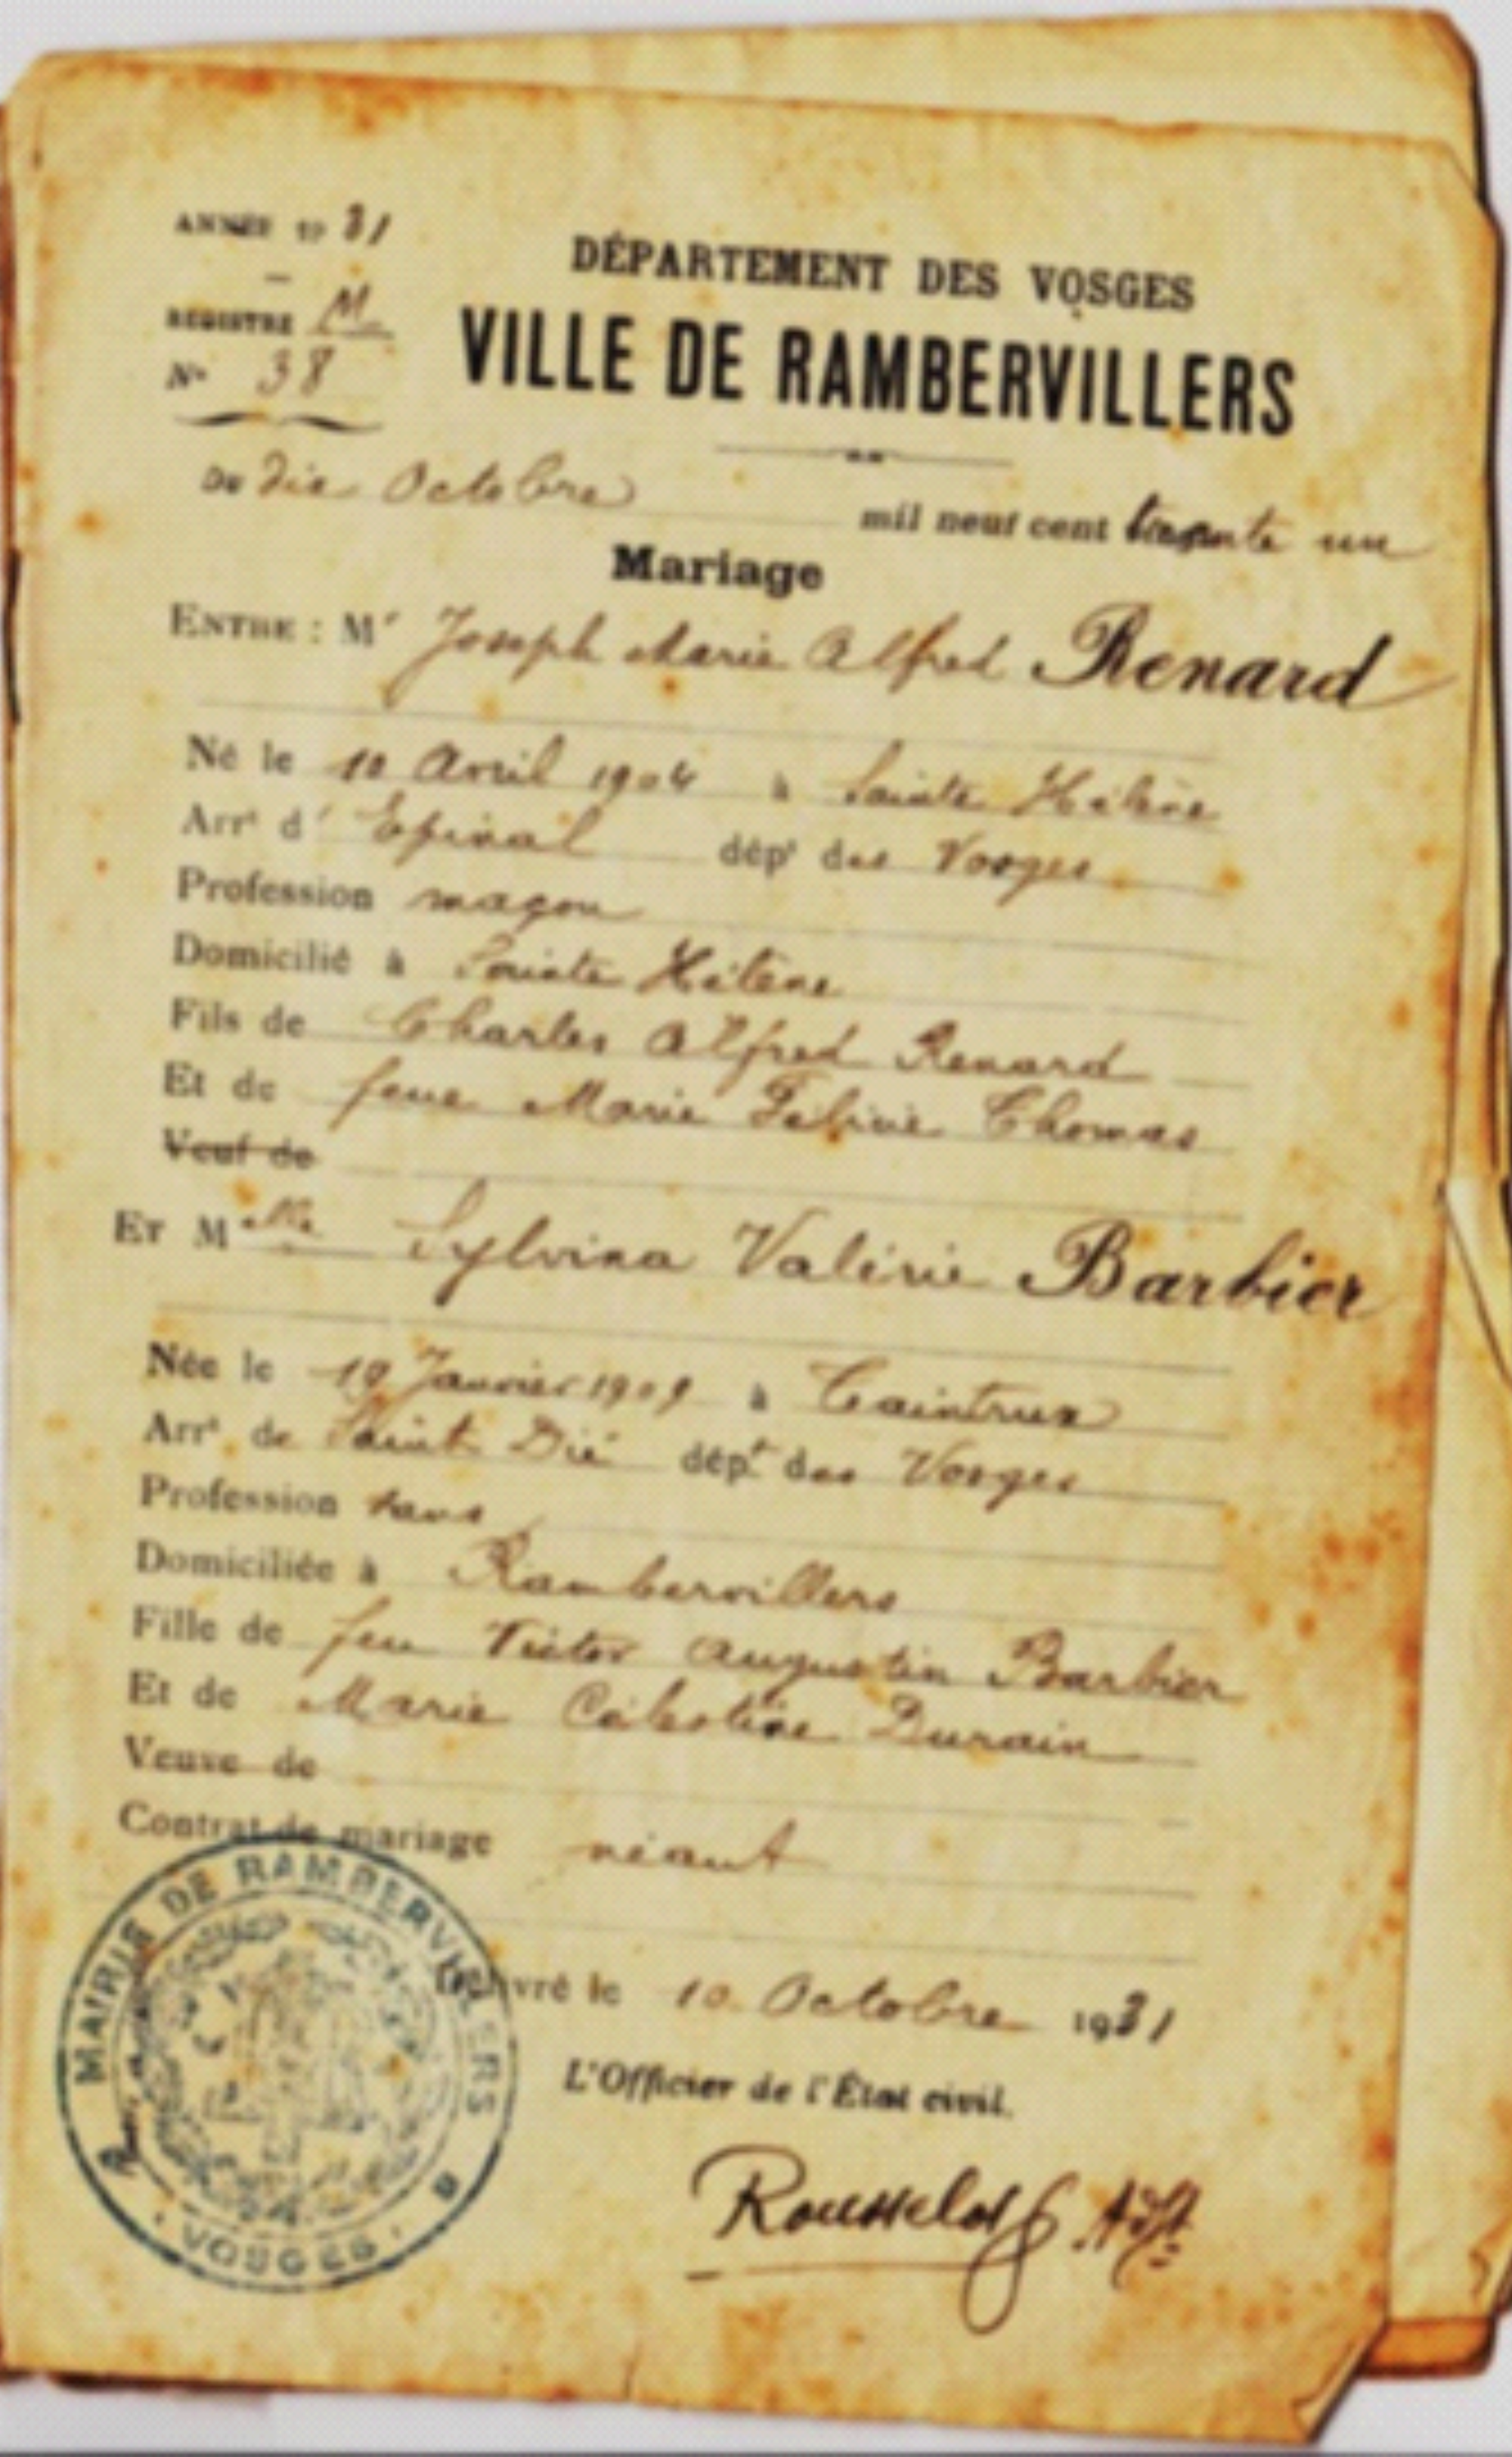 ANNÉE 19 31
REGISTRE M
N° 38
DÉPARTEMENT DES VOSGES
VILLE DE RAMBERVILLERS
DU dix Octobre mil neuf cent trente un
Mariage
ENTRE : Mr Joseph Marie Alfred Renard
Né le 10 Avril 1904 à Sainte Hélène
Arrt d' Epinal dépt des Vosges
Profession maçon
Domicilié à Sainte Hélène
Fils de Charles Alfred Renard
Et de feue Marie Félicie Thomas
Veuf de
ET Melle Sylvina Valérie Barbier
Née le 19 Janvier 1909 à Taintrux
Arrt de Saint Dié dépt des Vosges
Profession sans
Domiciliée à Rambervillers
Fille de feu Victor Augustin Barbier
Et de Marie Célestine Durain
Veuve de
Contrat de mariage néant
Délivré le 10 Octobre 1931
L'Officier de l'État civil.
Rousselot Adjt
MAIRIE DE RAMBERVILLERS
VOSGES